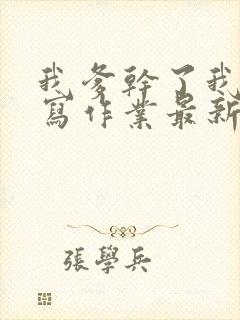 我爹幹了我
寫作業最新
張學兵